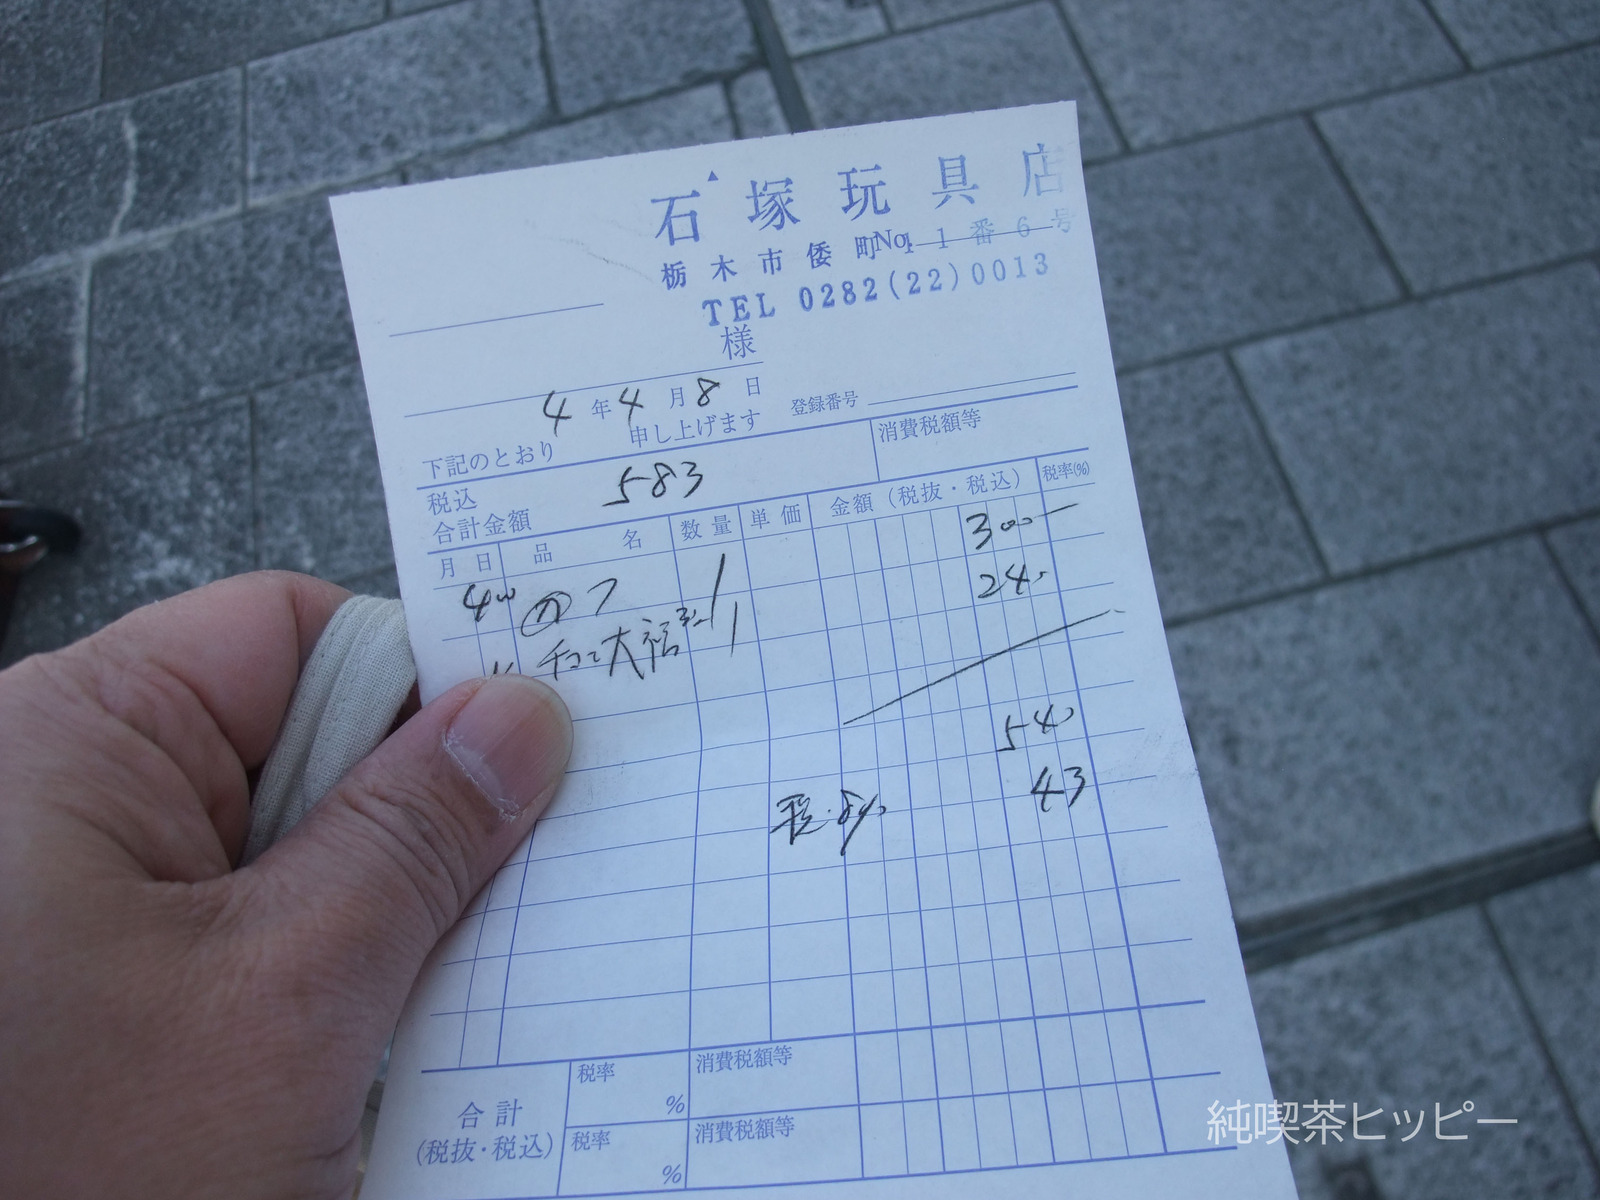 石塚玩具店
栃木市倭町 1番6号
No.
TEL 0282(22)0013
様
4年4月8日
登録番号
下記のとおり 申し上げます
税込
合計金額
583
消費税額等
月 日 品 名 数量 単価 金額 (税抜・税込) 税率(%)
300
チョコ大福 1 240
540
税・8% 43
合計
(税抜・税込)
税率 % 消費税額等
税率 % 消費税額等
純喫茶ヒッピー